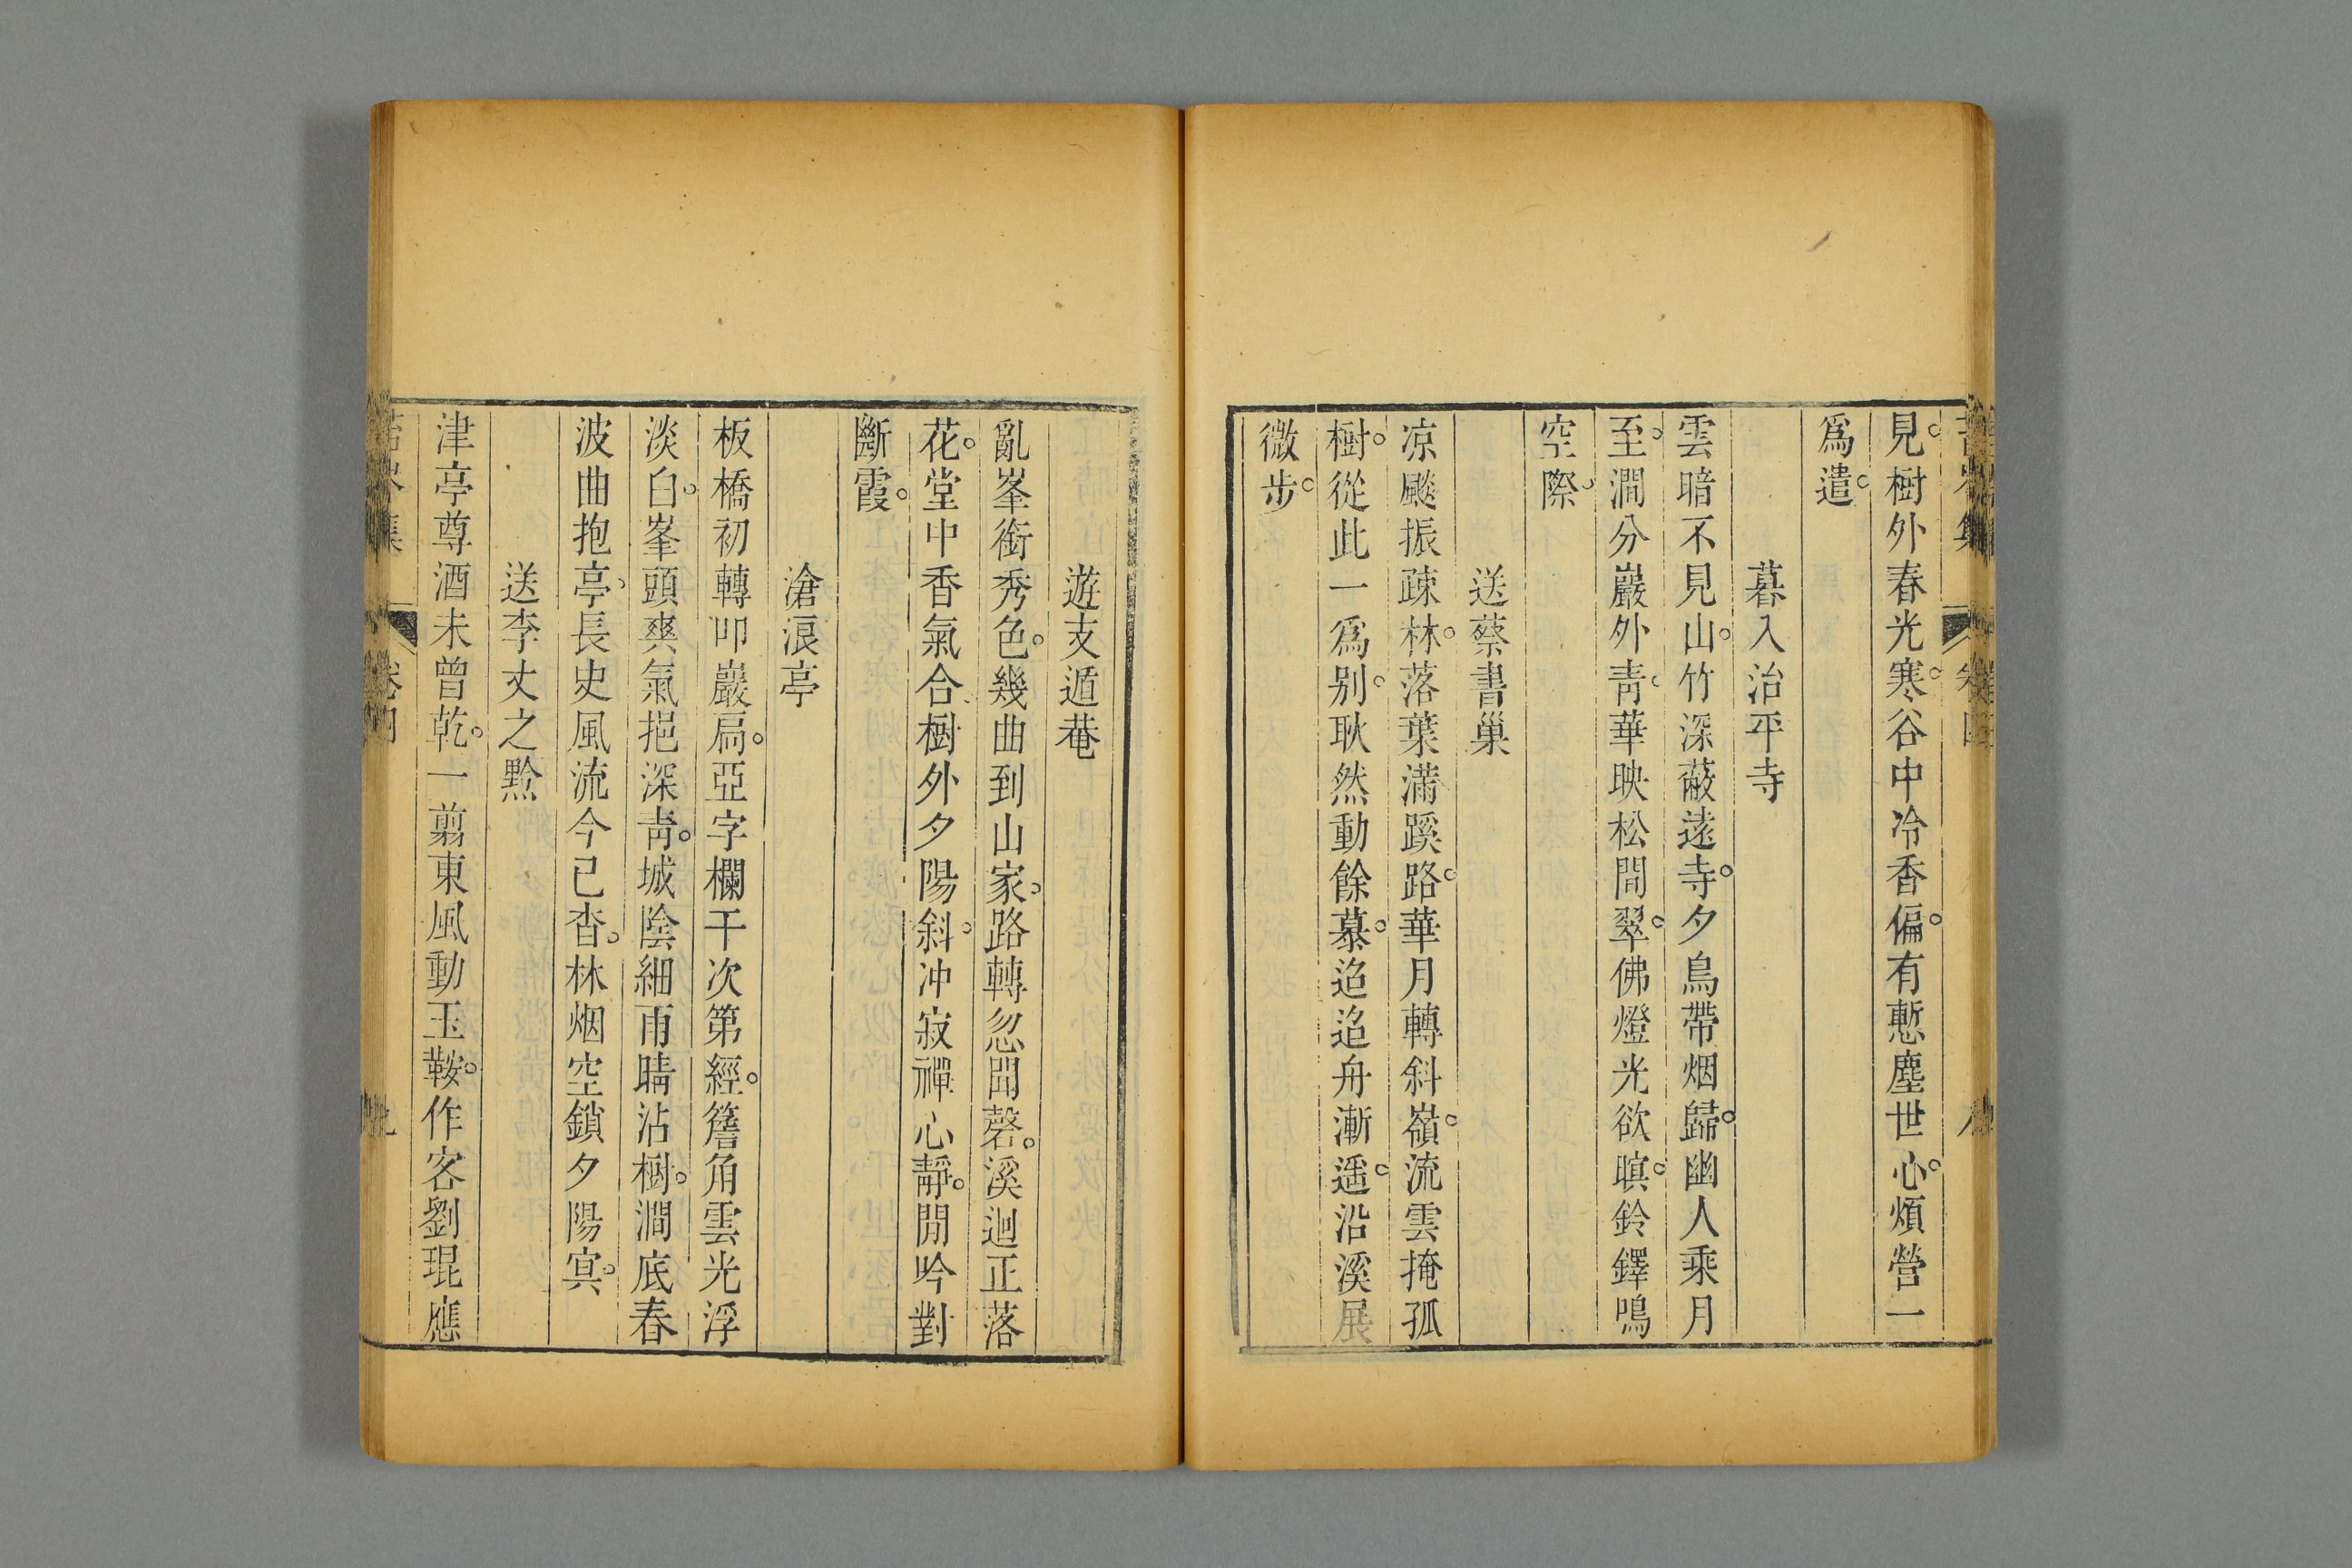 見樹外春光寒谷中冷香偏有慙塵世心煩營一
爲遣
暮入治平寺
雲暗不見山竹深蔽遠寺夕鳥帶烟歸幽人乘月
至澗分巖外靑華映松間翠佛燈光欲暝鈴鐸鳴
空際
送蔡書巢
凉颷振疎林落葉滿蹊路華月轉斜嶺流雲掩孤
樹從此一爲别耿然動餘慕迨迨舟漸遥沿溪展
微步
遊支遁菴
亂峯銜秀色幾曲到山家路轉忽聞磬溪迴正落
花堂中香氣合樹外夕陽斜冲寂禪心靜閒吟對
斷霞
滄浪亭
板橋初轉叩巖扃亞字欄干次第經簷角雲光浮
淡白峯頭爽氣挹深靑城陰細雨晴沾樹澗底春
波曲抱亭長史風流今已杳林烟空鎖夕陽㝠
送李丈之黔
津亭尊酒未曾乾一翦東風動玉鞍作客劉琨應
集 卷四